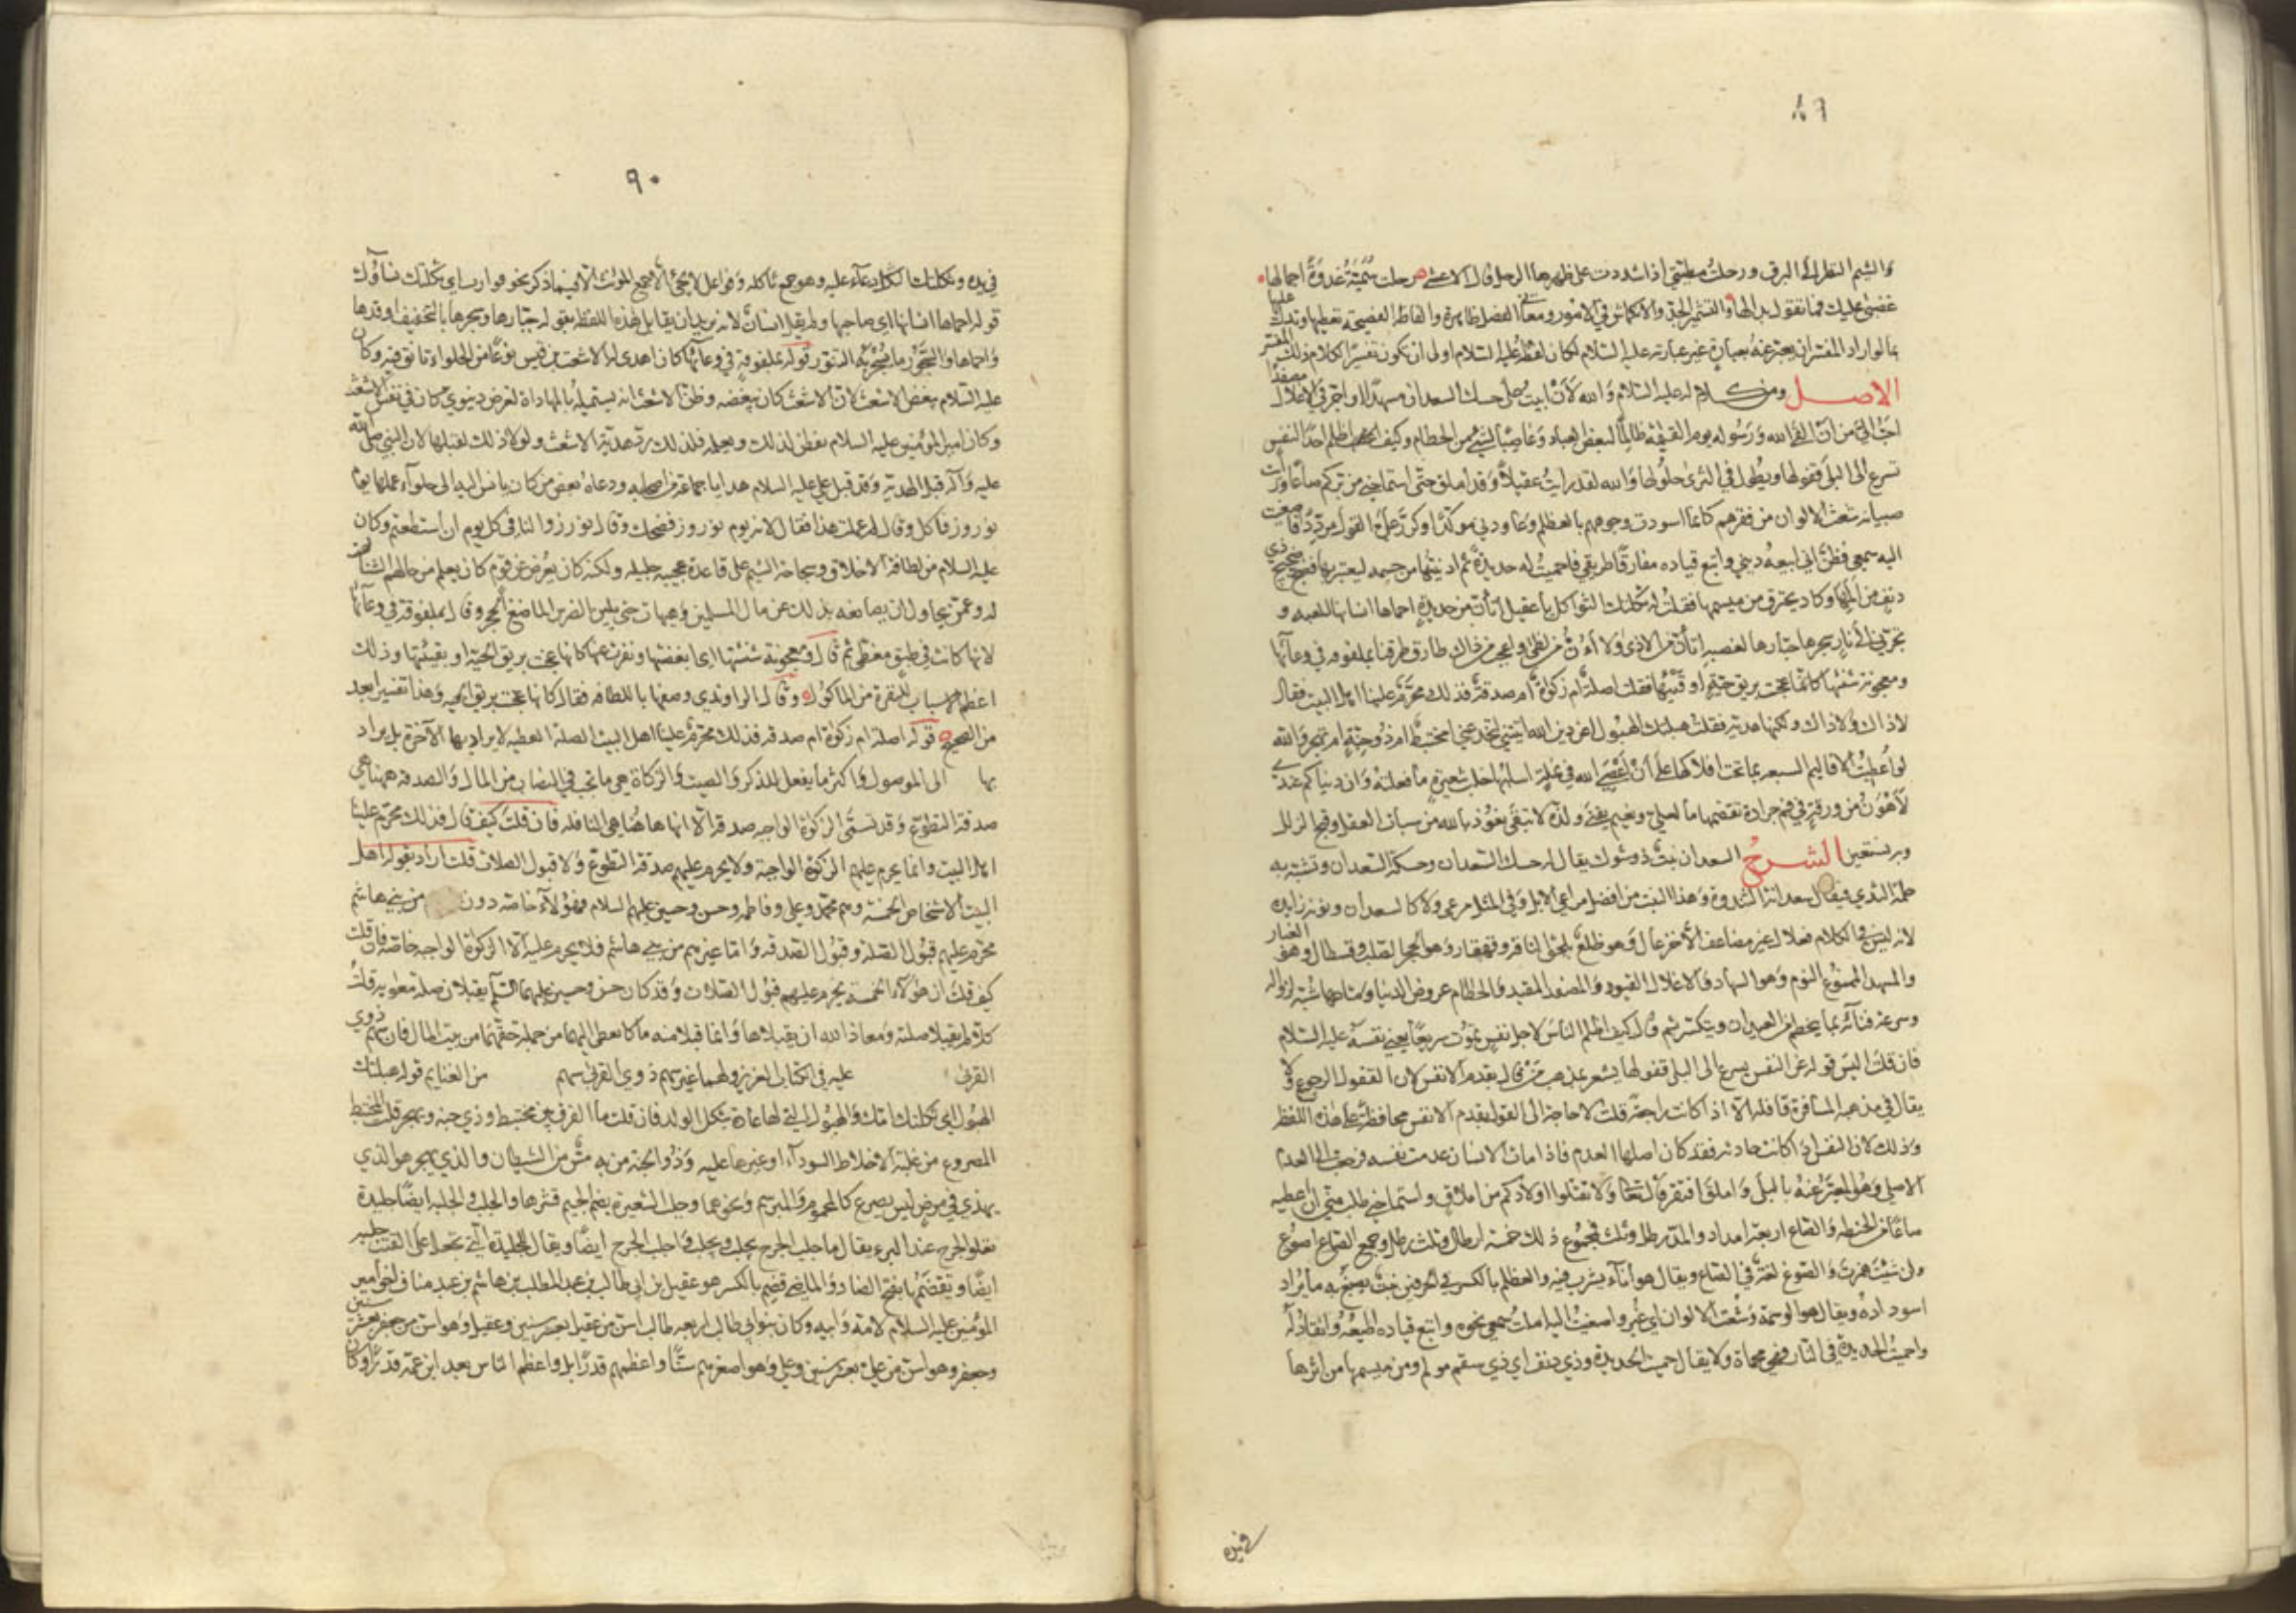 ٨٩
والشيم النظر الى البرق ورحلت مطيتي اذا شددت على ظهرها الرحل قال الاعشى رحلت سمية غدوة اجمالها
غضبى عليك فما تقول بدا لها والتشمير الجد والانكماش في الامور ومعاني الفصل ظاهرة والفاظه الفصيحة تعطيها وتدل عليها
بما لو اراد المفسر ان يعبر عنه بعبارة غير عبارته عليه السلام لكان لفظه عليه السلام اولى ان يكون تفسيرا لكلام ذلك المفسر
الاصل ومن كلام له عليه السلام والله لان ابيت على حسك السعدان مسهدا او اجر في الاغلال مصفدا
احب الي من ان القى الله ورسوله يوم القيمة ظالما لبعض العباد وغاصبا لشيء من الحطام وكيف اظلم احدا لنفس
تسرع الى البلى قفولها ويطول في الثرى حلولها والله لقد رايت عقيلا وقد املق حتى استماحني من بركم صاعا ورايت
صبيانه شعث الالوان من فقرهم كانما اسودت وجوههم بالعظلم وعاودني موكدا وكرر علي القول مرددا فاصغيت
اليه سمعي فظن اني ابيعه ديني واتبع قياده مفارقا طريقي فاحميت له حديدة ثم ادنيتها من جسمه ليعتبر بها فضج ضجيج ذي
دنف من المها وكاد يحترق من ميسمها فقلت له ثكلتك الثواكل يا عقيل اتئن من حديدة احماها انسانها للعبه و
تجرني الى نار سجرها جبارها لغضبه اتئن من الاذى ولا ائن من لظى واعجب من ذلك طارق طرقنا بملفوفة في وعائها
ومعجونة شنئتها كانما عجنت بريق حية او قيئها فقلت اصلة ام زكوة ام صدقة فذلك محرم علينا اهل البيت فقال
لا ذا ولا ذاك ولكنها هدية فقلت هبلتك الهبول اعن دين الله اتيتني لتخدعني امختبط ام ذو جنة ام تهجر والله
لو اعطيت الاقاليم السبعة بما تحت افلاكها على ان اعصي الله في نملة اسلبها جلب شعيرة ما فعلته وان دنياكم عندي
لاهون من ورقة في فم جرادة تقضمها ما لعلي ونعيم يفنى ولذة لا تبقى نعوذ بالله من سبات العقل وقبح الزلل
وبه نستعين الشرح السعدان نبت ذو شوك يقال له حسك السعدان وحسكة السعدان وتشبه به
حلمة الثدي فيقال سعدانة الثندوة وهذا النبت من افضل مراعي الابل وفي المثل مرعى ولا كالسعدان ونونه زايدة
لانه ليس في الكلام فعلال غير مضاعف الا خزعال وهو ظلع يلحق الناقة وقهقار وهو الحجر الصلب وقسطال وهو الغبار
والمسهد الممنوع النوم وهو السهاد والاغلال القيود والمصفد المقيد والحطام عروض الدنيا ومتاعها شبه لزواله
وسرعة فنائه بما يتحطم من العيدان ويتكسر ثم قال كيف اظلم الناس لاجل نفس تموت سريعا يعني نفسه عليه السلام
فان قلت اليس قوله عن النفس يسرع الى البلى قفولها يشعر بمذهب من قال بقدم الانفس لان القفول الرجوع ولا
يقال في مذهبه المسافرة قافلة الا اذا كانت راجعة قلت لا حاجة الى القول بقدم الانفس محافظة على هذه اللفظة
وذلك لان النفس اذا كانت حادثة فقد كان اصلها العدم فاذا مات الانسان عدمت نفسه فرجعت الى العدم
الاصلي وهو المعبر عنه بالبلى واملق افتقر قال تعالى ولا تقتلوا اولادكم من املاق واستماحني طلب مني ان اعطيه
صاعا من الحنطة والصاع اربعة امداد والمد رطل وثلث فمجموع ذلك خمسة ارطال وثلث رطل وجمع الصاع اصوع
وان شئت همزت والصوع لغة في الصاع ويقال هو اناء يشرب فيه والعظلم بالكسر في الحرفين نبت يصبغ به ما يراد
اسوداده ويقال هو الوسمة وشعث الالوان اي غبر واصغيت اليه املت سمعي نحوه واتبع قياده اطيعه وانقاد له
واحميت الحديدة في النار فهي محماة ولا يقال حميت الحديدة وذي دنف اي ذي سقم مولم ومن ميسمها من اثرها
في يده
٩٠
في يده وثكلتك الثواكل دعاء عليه وهو جمع ثاكلة وفواعل لا يجيء الا جمع المونث الا فيما ذكر نحو فوارس اي ثكلتك نساؤك
قوله احماها انسانها اي صاحبها ولم يقل انسان لانه يريد ان يقابل هذه اللفظة بقوله جبارها وسجرها بالتخفيف اوقدها
واحماها والسجور ما يسجر به التنور قوله بملفوفة في وعائها كان اهدى له الاشعث بن قيس نوعا من الحلواء تانق فيه وكان
عليه السلام يبغض الاشعث لان الاشعث كان يبغضه وظن الاشعث انه يستميله بالمهاداة لغرض دنيوي كان في نفس الاشعث
وكان امير المؤمنين عليه السلام يفطن لذلك ويعلمه فلذلك رد هدية الاشعث ولولا ذلك لقبلها لان النبي صلى الله
عليه وآله قبل الهدية وقد قبل علي عليه السلام هدايا جماعة من اصحابه ودعاه بعض من كان يانس اليه الى حلوآء عملها يوم
نوروز فاكل وقال لم عملت هذا فقال لانه يوم نوروز فضحك وقال نورزوا لنا في كل يوم ان استطعتم وكان
عليه السلام من لطافة الاخلاق وسجاحة الشيم على قاعدة عجيبة جليلة ولكنه كان يعرض عن قوم كان يعلم من حالهم الشنآن
له وعمن يحاول ان يصانعه بذلك عن مال المسلمين وهيهات حتى يلين لضرس الماضغ الحجر وقال بملفوفة في وعائها
لانها كانت في طبق مغطى ثم قال ومعجونة شنئتها اي ابغضتها ونفرت عنها كانها عجنت بريق الحية او بقيئها وذلك
اعظم الاسباب للنفرة من الماكول وقال الراوندي وصفها باللطافة فقال كانها عجنت بريق الحية وهذا تفسير ابعد
من الصحيح قوله اصلة ام زكوة ام صدقة فذلك محرم علينا اهل البيت الصلة العطية لا يراد بها الآخرة بل يراد
بها الى الموصول واكثر ما يفعل للذكر والصيت والزكاة هي ما تجب في النصاب من المال والصدقة ههنا هي
صدقة التطوع وقد تسمى الزكوة الواجبة صدقة الا انها هاهنا هي النافلة فان قلت كيف قال فذلك محرم علينا
اهل البيت وانما يحرم عليهم الزكوة الواجبة ولا يحرم عليهم صدقة التطوع ولا قبول الصلات قلت اراد بقوله اهل
البيت الاشخاص الخمسة وهم محمد وعلي وفاطمة وحسن وحسين عليهم السلام فهؤلآء خاصة دون من بني هاشم
محرم عليهم قبول الصلة وقبول الصدقة واما غيرهم من بني هاشم فلا يحرم عليه الا الزكوة الواجبة خاصة فان قلت
كيف قلت ان هؤلآء الخمسة يحرم عليهم قبول الصلات وقد كان حسن وحسين عليهما السلام يقبلان صلة معوية قلت
كلا لم يقبلا صلته ومعاذ الله ان يقبلاها وانما قبلا منه ما كان يعطى اليهما من جملة حقهما من بيت المال فان سهم ذوي
القربى عليه في الكتاب العزيز ولهما غير سهم ذوي القربى سهم من الغنايم قوله هبلتك
الهبول اي ثكلتك امك والهبول التي لها عادة بثكل الولد فان قلت ما الفرق بين مختبط وذي جنة ويهجر قلت المختبط
المصروع من غلبة الاخلاط السودآء او غيرها عليه وذو الجنة من به مس من الشيطان والذي يهجر هو الذي
يهذي في مرض ليس بصرع كالمحموم والمبرسم ونحوهما وجلب الشعيرة بضم الجيم قشرها والجلب والجلبة ايضا جليدة
تعلو الجرح عند البرء يقال منه جلب الجرح يجلب ويجلب واجلب الجرح ايضا ويقال للجليدة التي تجعل على القتب جلبة
ايضا وتقضمها بفتح الضاد والماضي قضم بالكسر هو عقيل بن ابي طالب بن عبد المطلب بن هاشم بن عبد مناف اخو امير
المؤمنين عليه السلام لامه وابيه وكان بنو ابي طالب اربعة طالب اسن من عقيل بعشر سنين وعقيل وهو اسن من جعفر بعشر سنين
وجعفر وهو اسن من علي بعشر سنين وعلي وهو اصغرهم سنا واعظمهم قدرا بل واعظم الناس بعد ابن عمه قدرا وكان